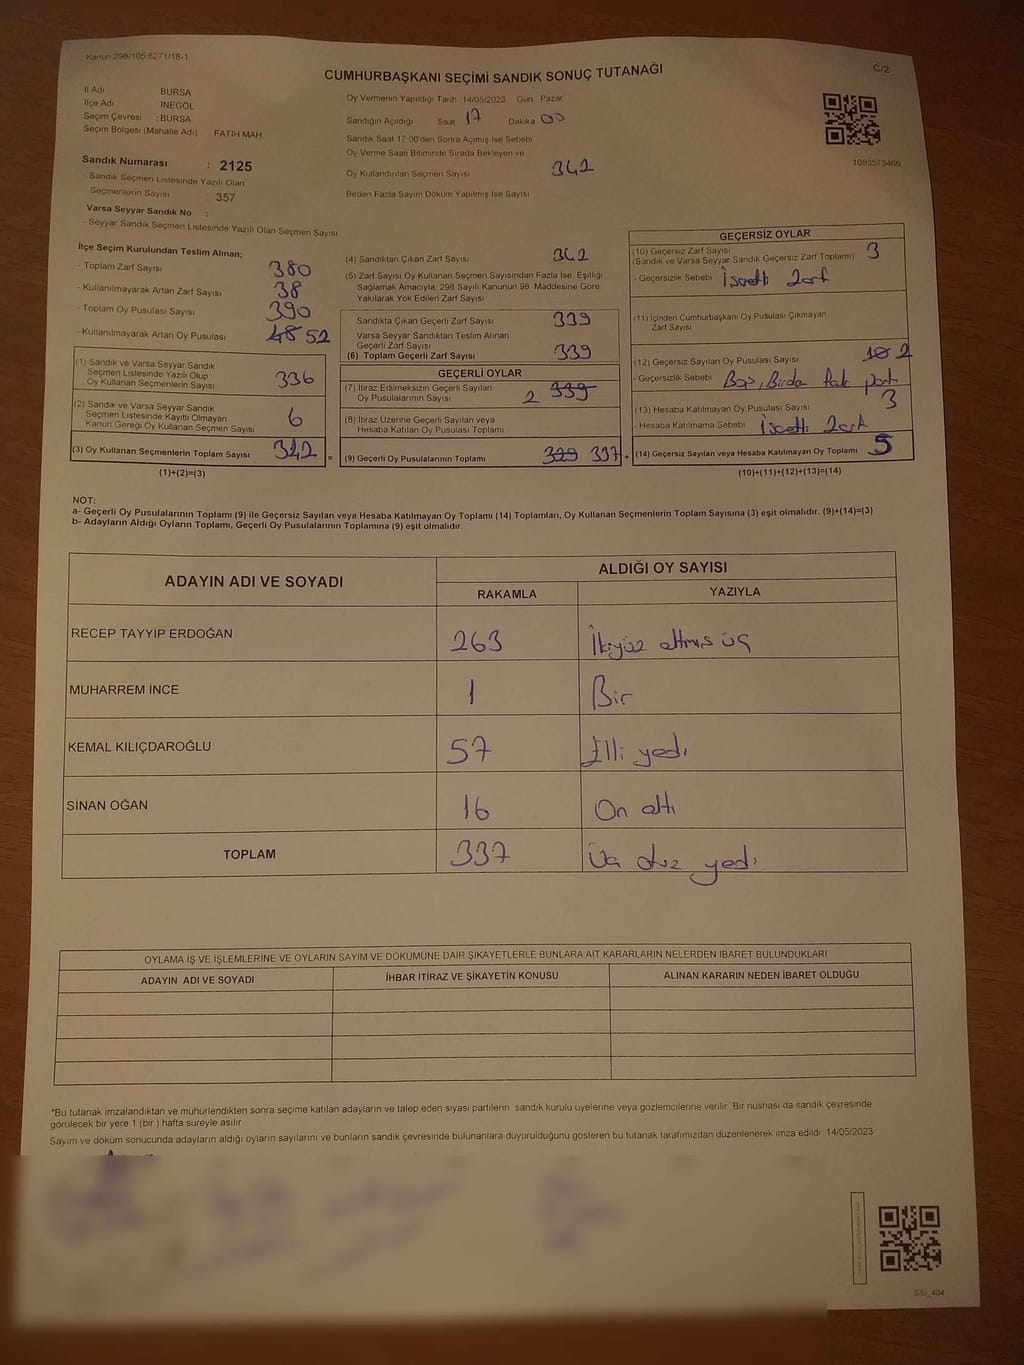 Kanun:298/105,6271/18-1
C/2
CUMHURBAŞKANI SEÇİMİ SANDIK SONUÇ TUTANAĞI
İl Adı BURSA
İlçe Adı İNEGÖL
Seçim Çevresi : BURSA
Seçim Bölgesi (Mahalle Adı) FATİH MAH.
Sandık Numarası : 2125
- Sandık Seçmen Listesinde Yazılı Olan
Seçmenlerin Sayısı : 357
Varsa Seyyar Sandık No :
- Seyyar Sandık Seçmen Listesinde Yazılı Olan Seçmen Sayısı
Oy Vermenin Yapıldığı Tarih 14/05/2023 Gün Pazar
Sandığın Açıldığı Saat 17 Dakika 00
Sandık Saat 17:00'den Sonra Açılmış İse Sebebi
Oy Verme Saati Bitiminde Sırada Bekleyen ve
Oy Kullandırılan Seçmen Sayısı 342
Birden Fazla Sayım Döküm Yapılmış İse Sayısı
1093573466
İlçe Seçim Kurulundan Teslim Alınan;
- Toplam Zarf Sayısı 380
- Kullanılmayarak Artan Zarf Sayısı 38
- Toplam Oy Pusulası Sayısı 390
- Kullanılmayarak Artan Oy Pusulası 48 52
(1) Sandık ve Varsa Seyyar Sandık
Seçmen Listesinde Yazılı Olup
Oy Kullanan Seçmenlerin Sayısı 336
(2) Sandık ve Varsa Seyyar Sandık
Seçmen Listesinde Kayıtlı Olmayan
Kanun Gereği Oy Kullanan Seçmen Sayısı 6
(3) Oy Kullanan Seçmenlerin Toplam Sayısı 342
(1)+(2)=(3)
(4) Sandıktan Çıkan Zarf Sayısı 342
(5) Zarf Sayısı Oy Kullanan Seçmen Sayısından Fazla İse, Eşitliği
Sağlamak Amacıyla, 298 Sayılı Kanunun 98. Maddesine Göre
Yakılarak Yok Edilen Zarf Sayısı
Sandıkta Çıkan Geçerli Zarf Sayısı 339
Varsa Seyyar Sandıktan Teslim Alınan
Geçerli Zarf Sayısı
(6) Toplam Geçerli Zarf Sayısı 339
GEÇERLİ OYLAR
(7) İtiraz Edilmeksizin Geçerli Sayılan
Oy Pusulalarının Sayısı 2 339
(8) İtiraz Üzerine Geçerli Sayılan veya
Hesaba Katılan Oy Pusulası Toplamı
= (9) Geçerli Oy Pusulalarının Toplamı 329 337 +
GEÇERSİZ OYLAR
(10) Geçersiz Zarf Sayısı
(Sandık ve Varsa Seyyar Sandık Geçersiz Zarf Toplamı) 3
- Geçersizlik Sebebi İşaretli Zarf
(11) İçinden Cumhurbaşkanı Oy Pusulası Çıkmayan
Zarf Sayısı
(12) Geçersiz Sayılan Oy Pusulası Sayısı 10 2
- Geçersizlik Sebebi Boş, Birden fazla parti
(13) Hesaba Katılmayan Oy Pusulası Sayısı 3
- Hesaba Katılmama Sebebi İşaretli Zarf
(14) Geçersiz Sayılan veya Hesaba Katılmayan Oy Toplamı 5
(10)+(11)+(12)+(13)=(14)
NOT:
a- Geçerli Oy Pusulalarının Toplamı (9) ile Geçersiz Sayılan veya Hesaba Katılmayan Oy Toplamı (14) Toplamları, Oy Kullanan Seçmenlerin Toplam Sayısına (3) eşit olmalıdır. (9)+(14)=(3)
b- Adayların Aldığı Oyların Toplamı, Geçerli Oy Pusulalarının Toplamına (9) eşit olmalıdır.
ADAYIN ADI VE SOYADI
ALDIĞI OY SAYISI
RAKAMLA YAZIYLA
RECEP TAYYİP ERDOĞAN 263 İkiyüz altmış üç
MUHARREM İNCE 1 Bir
KEMAL KILIÇDAROĞLU 57 Elli yedi
SİNAN OĞAN 16 On altı
TOPLAM 337 Üç otuz yedi
OYLAMA İŞ VE İŞLEMLERİNE VE OYLARIN SAYIM VE DÖKÜMÜNE DAİR ŞİKAYETLERLE BUNLARA AİT KARARLARIN NELERDEN İBARET BULUNDUKLARI
ADAYIN ADI VE SOYADI
İHBAR İTİRAZ VE ŞİKAYETİN KONUSU
ALINAN KARARIN NEDEN İBARET OLDUĞU
*Bu tutanak imzalandıktan ve mühürlendikten sonra seçime katılan adayların ve talep eden siyasi partilerin sandık kurulu üyelerine veya gözlemcilerine verilir. Bir nüshası da sandık çevresinde
görülecek bir yere 1 (bir ) hafta süreyle asılır.
Sayım ve döküm sonucunda adayların aldığı oyların sayılarını ve bunların sandık çevresinde bulunanlara duyurulduğunu gösteren bu tutanak tarafımızdan düzenlenerek imza edildi. 14/05/2023